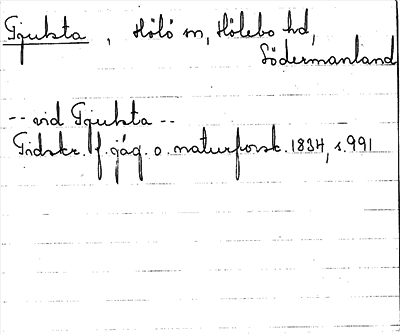 Tjukta, Hölö sn, Hölebo hd,
Södermanland
-- vid Tjukta --
Tidskr. f. jäg. o. naturforsk. 1834, s. 991